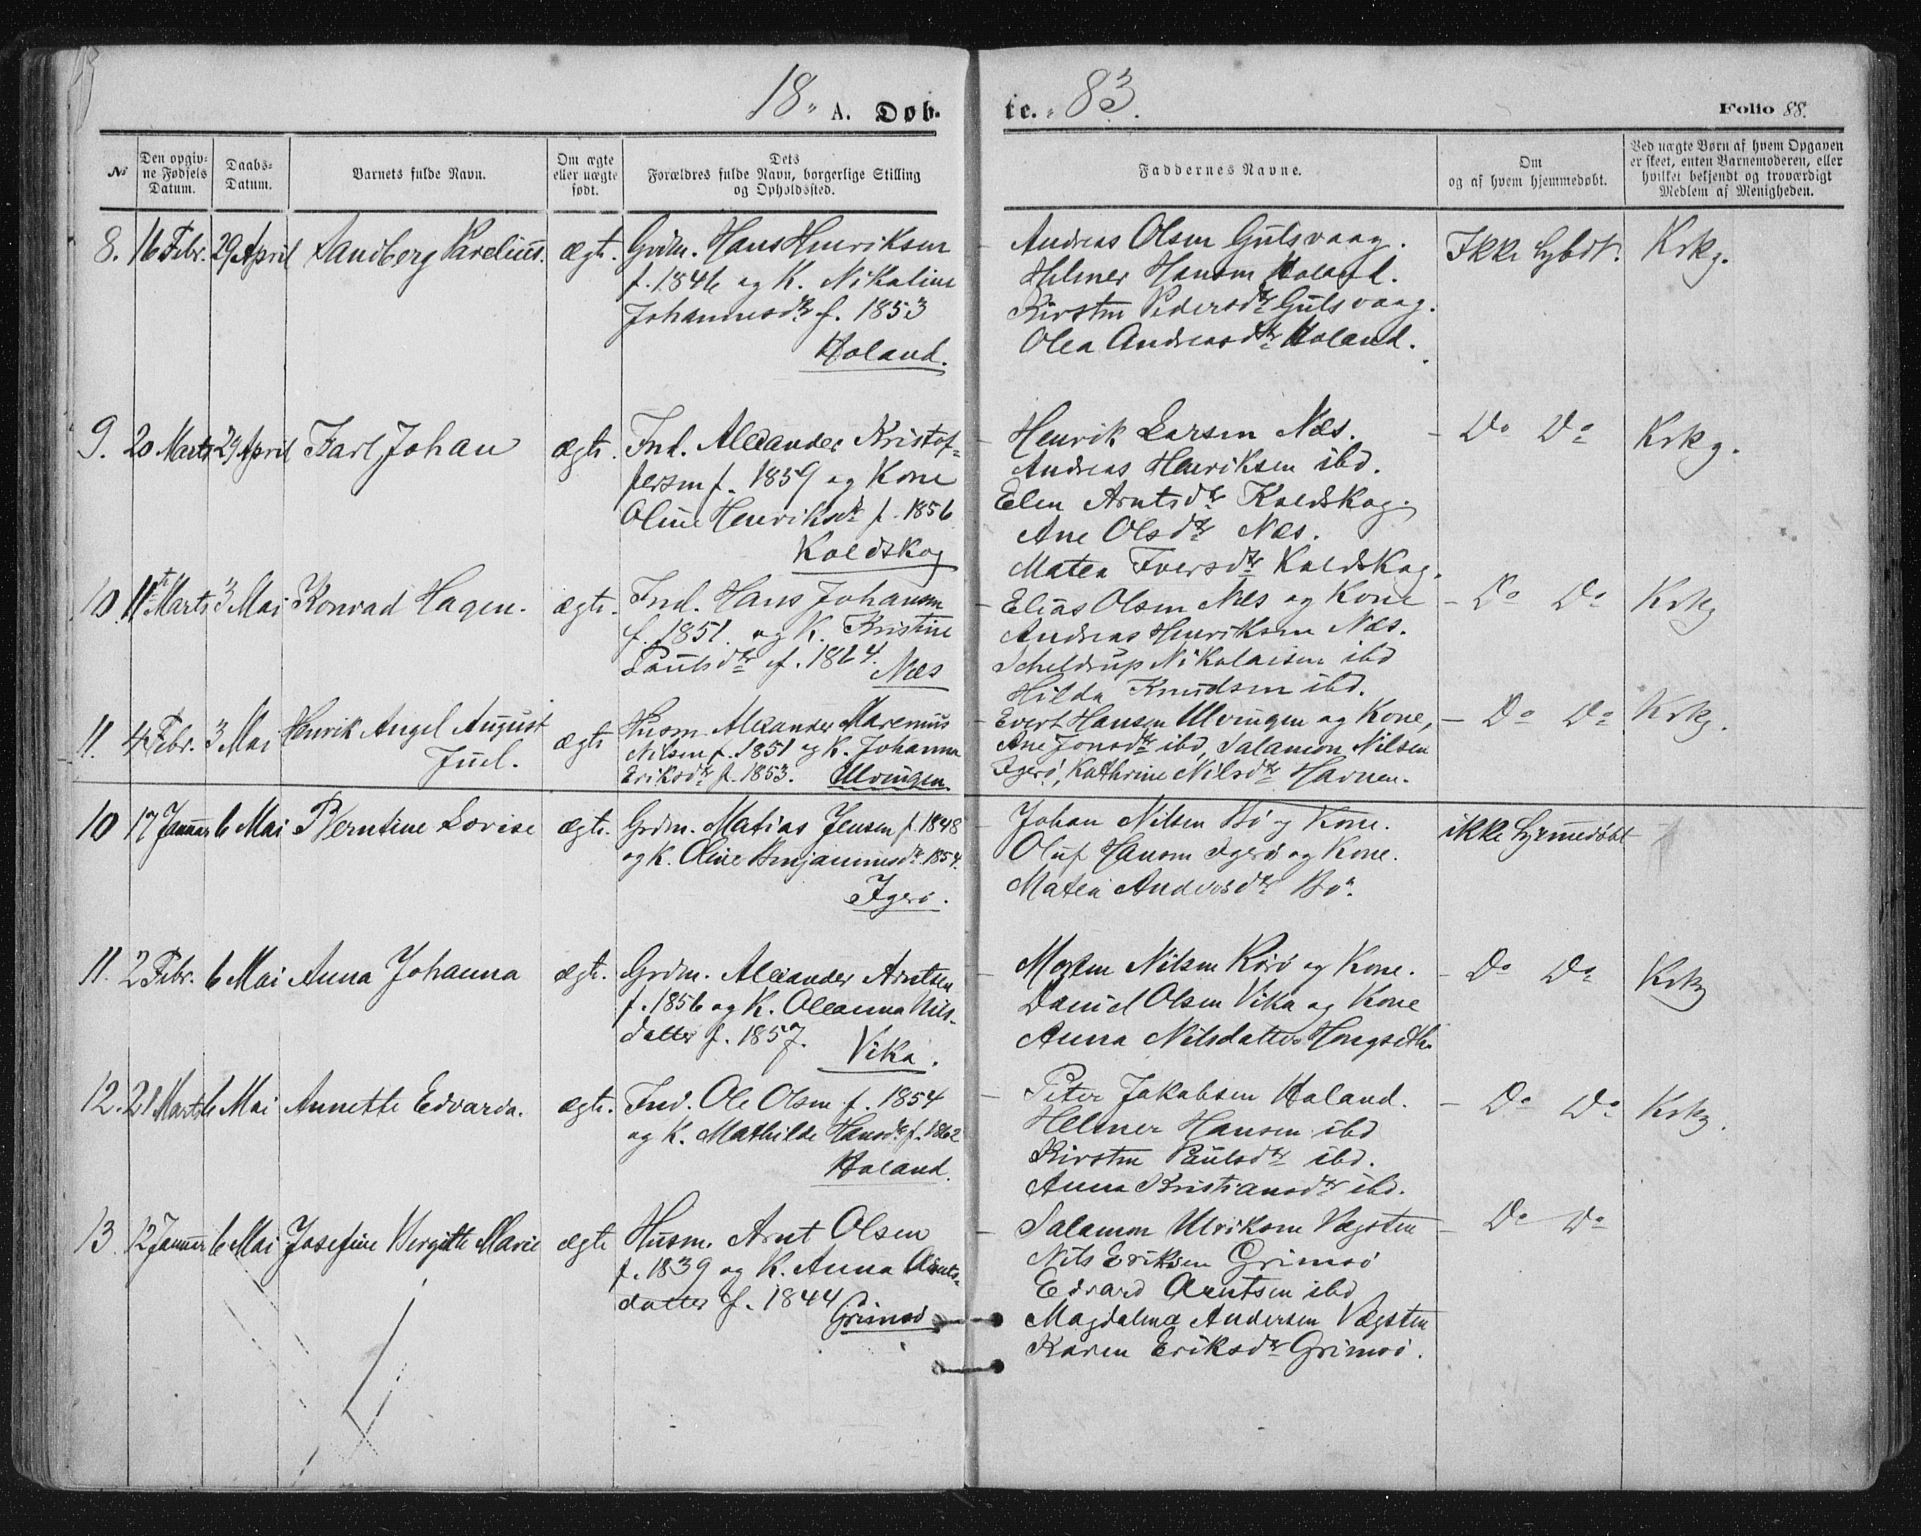 18 A. Døb- te. 83.
Folio 88.
№
Den opgiv-
ne Fødsels
Datum.
Daabs-
Datum.
Barnets fulde Navn.
Om ægte
eller uægte
født.
Dets
Forældres fulde Navn, borgerlige Stilling
og Opholdssted.
Faddernes Navne.
Om
og af hvem hjemmedøbt.
Ved uægte Børn af hvem Opgaven
er skeet, enten Barnemoderen, eller
hvilket bekjendt og troværdigt
Medlem af Menigheden.
8. 16 Febr. 29 April Sandberg Parelius. ægt.
Grdm. Hans Henriksen
f. 1846 og K. Nikoline
Johannesdtr f. 1853
Holand.
Andreas Olsen Gulsvaag.
Helmer Hansen Holand.
Kirsten Pedersdtr Gulsvaag.
Olea Andreasdtr Holand.
Ikke Krkg.
9. 20 Marts 29 April Karl Johan ægte.
Ind. Alexander Kristof-
fersen f. 1859 og Kone
Oline Henriksdtr f. 1856
Koldskog
Henrik Larsen Næs.
Andreas Henriksen ibd.
Elen Arntsdtr Koldskog.
Ane Olsdtr Næs.
Matea Iversdtr Koldskog.
Do Do Krkg.
10. 11te Marts 3 Mai Konrad Hagen. ægte.
Ind. Hans Johansen
f. 1851. og K. Kristine
Paulsdtr f. 1864.
Næs
Elias Olsen Næs og Kone
Andreas Henriksen Næs.
Scheldrup Nikolaisen ibd
Hilda Knudsen ibd.
Do Do Krkg
11. 4 Febr. 3 Mai Henrik Angel August
Juel. ægte
Husm. Alexander Marenius
Nilsen f. 1851 og K. Johanna
Eriksdtr f. 1853. Ulvingen
Evert Hansen Ulvingen og Kone,
Ane Jonsdtr ibd, Salamon Nilsen
Igerø, Kathrine Nilsdtr Havnen.
Do Do Krkg.
10 17 Januar 6 Mai Berntine Lovise ægte.
Grdm. Matias Jensen f. 1848
og K. Oline Benjaminsdtr 1854.
Igerø.
Johan Nilsen Bø og Kone.
Oluf Hansen Igerø og Kone.
Matea Andersdtr Bø.
ikke
11. 2 Febr. 6 Mai Anna Johanna ægte.
Grdm. Alexander Arntsen
f. 1856 og K. Oleanna Nils-
datter f. 1857.
Vika.
Morten Nilsen Rørø og Kone.
Daniel Olsen Vika og Kone
Anna Nilsdatter
Do Do Krkg
12. 21 Marts 6 Mai Annette Edvarda. ægte.
Ind. Ole Olsen f. 1854
og K. Mathilde Hansdtr f. 1862
Holand.
Peter Jakobsen Holand.
Helmer Hansen ibd
Kirsten Paulsdtr ibd.
Anna Kristiansdtr ibd.
Do Do Krkg.
13. 12 Januar 6 Mai Josefine Bergitte Marie ægte
Husm. Arnt Olsen
f. 1839 og K. Anna Arnts-
datter f. 1844
Grimsø
Salamon Ulriksen Vægsten
Nils Eriksen Grimsø
Edvard Arntsen ibd
Magdalena Andersen Vægsten
Karen Eriksdtr Grimsø.
Do Do